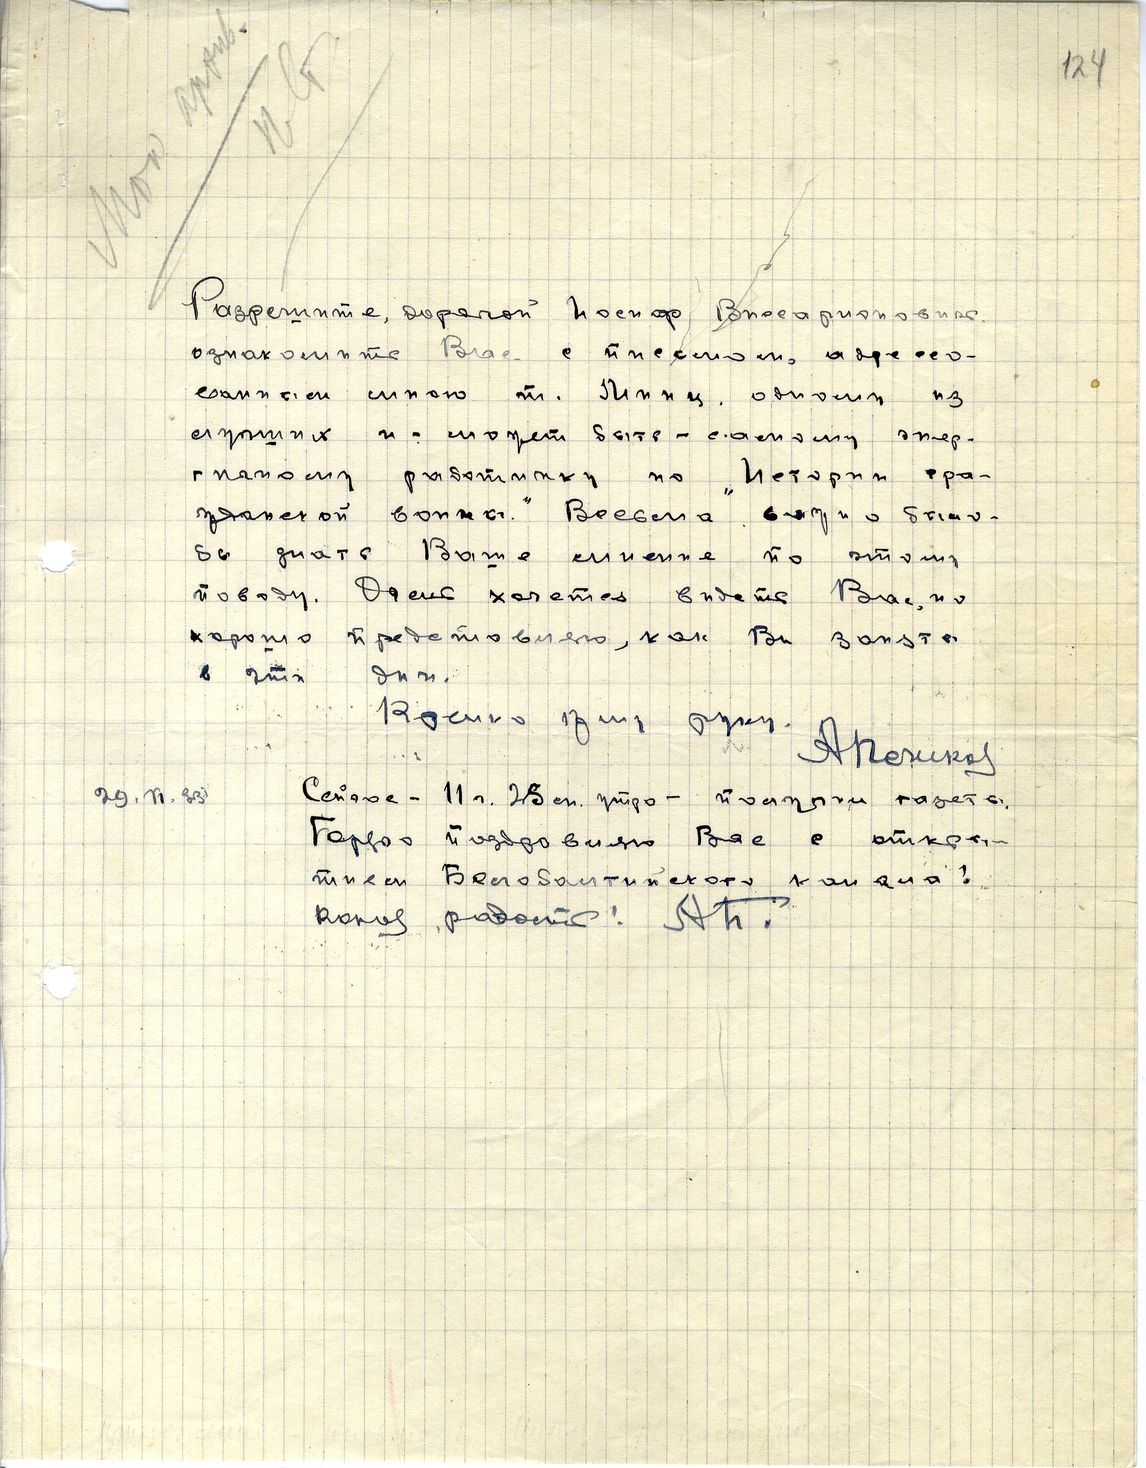 Мой архив.
И Ст.
124
Разрешите, дорогой Иосиф Висарионович
ознакомить Вас с письмом, адресо-
ванным мною т. Минц, одному из
лучших и - может быть - самому энер-
гичному работнику по „Истории гра-
жданской войны." Весьма важно было-
бы знать Ваше мнение по этому
поводу. Очень хочется видеть Вас, но
хорошо представляю, как Вы заняты
в эти дни.
Крепко жму руку.
А Пешков
29. VI. 33
Сейчас - 11 ч. 25 м. утра - получили газеты.
Горячо поздравляю Вас с откры-
тием Беломбалтийского канала!
радость! АП.